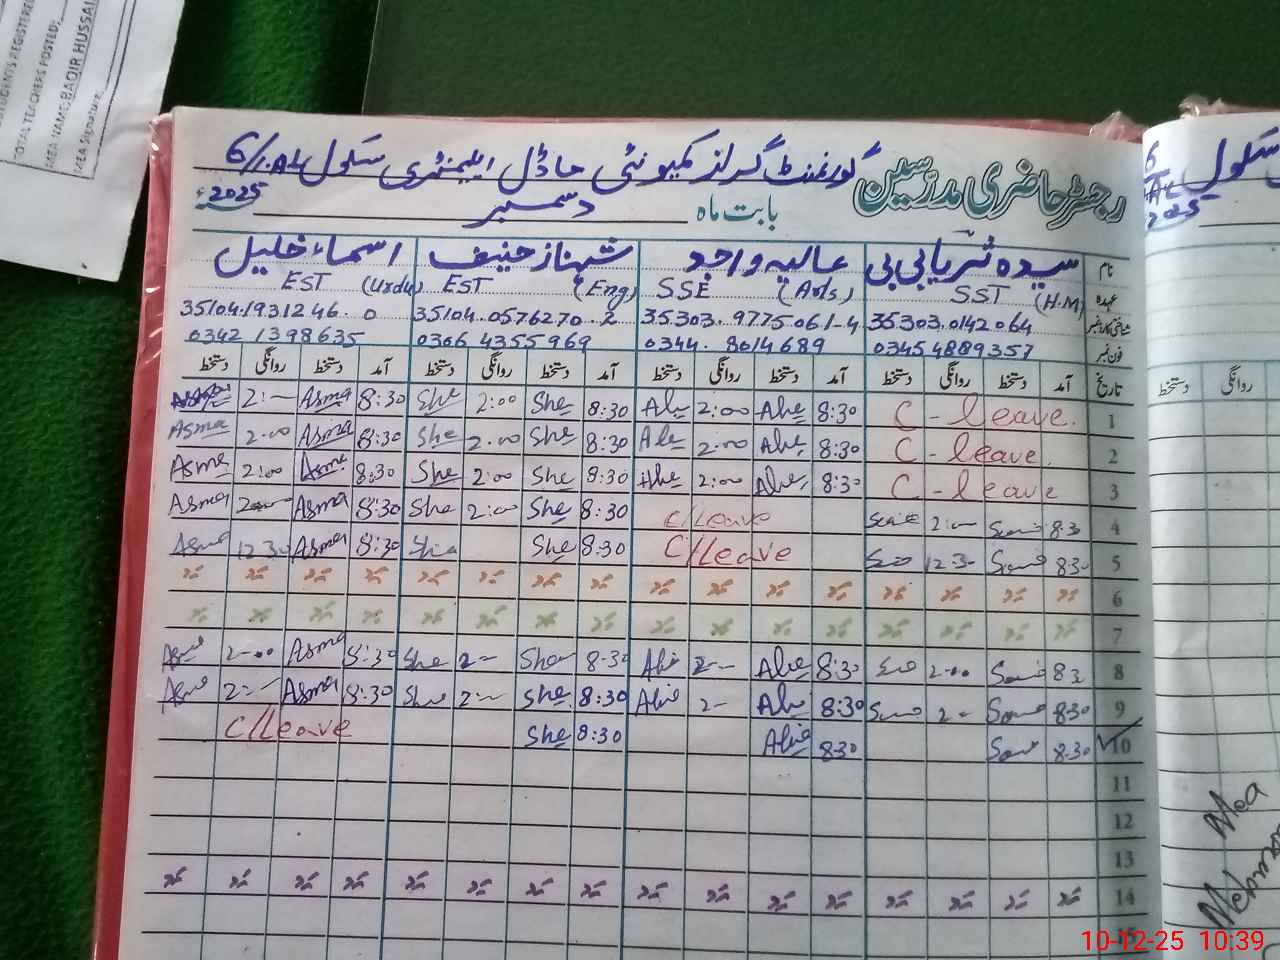 STUDENTS REGISTERED
TOTAL TEACHERS POSTED:
MEA NAME: BAQIR HUSSAI
MEA Signature:
رجسٹر حاضری مدرسین گورنمنٹ گرلز کمیونٹی ماڈل ایلیمنٹری سکول 6/1.AL
بابت ماہ دسمبر 2025ء
نام سیدہ ثریا بی بی عالیہ واجد شہناز حنیف اسماء خلیل
عہدہ SST (H.M) SSE (Arts) EST (Eng) EST (Urdu)
شناختی کارڈ نمبر 35303.0142064 35303.9775061-4 35104.0576270.2 35104.1931246.0
فون نمبر 03454889357 0344.8014689 0306 4355969 0342 1398635
تاریخ آمد دستخط روانگی دستخط آمد دستخط روانگی دستخط آمد دستخط روانگی دستخط آمد دستخط روانگی دستخط
1 C - leave. 8:30 Alie 2:00 Alie 8:30 She 2:00 She 8:30 Asma 2:— Asma
2 C - leave. 8:30 Alie 2:00 Alie 8:30 She 2:00 She 8:30 Asma 2:00 Asma
3 C - leave 8:30 Alie 2:00 Alie 8:30 She 2:00 She 8:30 Asma 2:00 Asma
4 8:30 2:— C/Leave 8:30 She 2:00 She 8:30 Asma 2:00 Asma
5 8:30 12:30 C/Leave 8:30 She She 8:30 Asma 12:30 Asma
6
7
8 8:30 2:00 8:30 Alie 2:— Alie 8:30 She 2:— She 8:30 Asma 2:00 Asma
9 8:30 2:— 8:30 Alie 2— Alie 8:30 She 2:— She 8:30 Asma 2:— Asma
10 8:30 8:30 Alie 8:30 She C/Leave
11
12
13
14
6
سکول
2025
دستخط روانگی
Mea
10-12-25 10:39